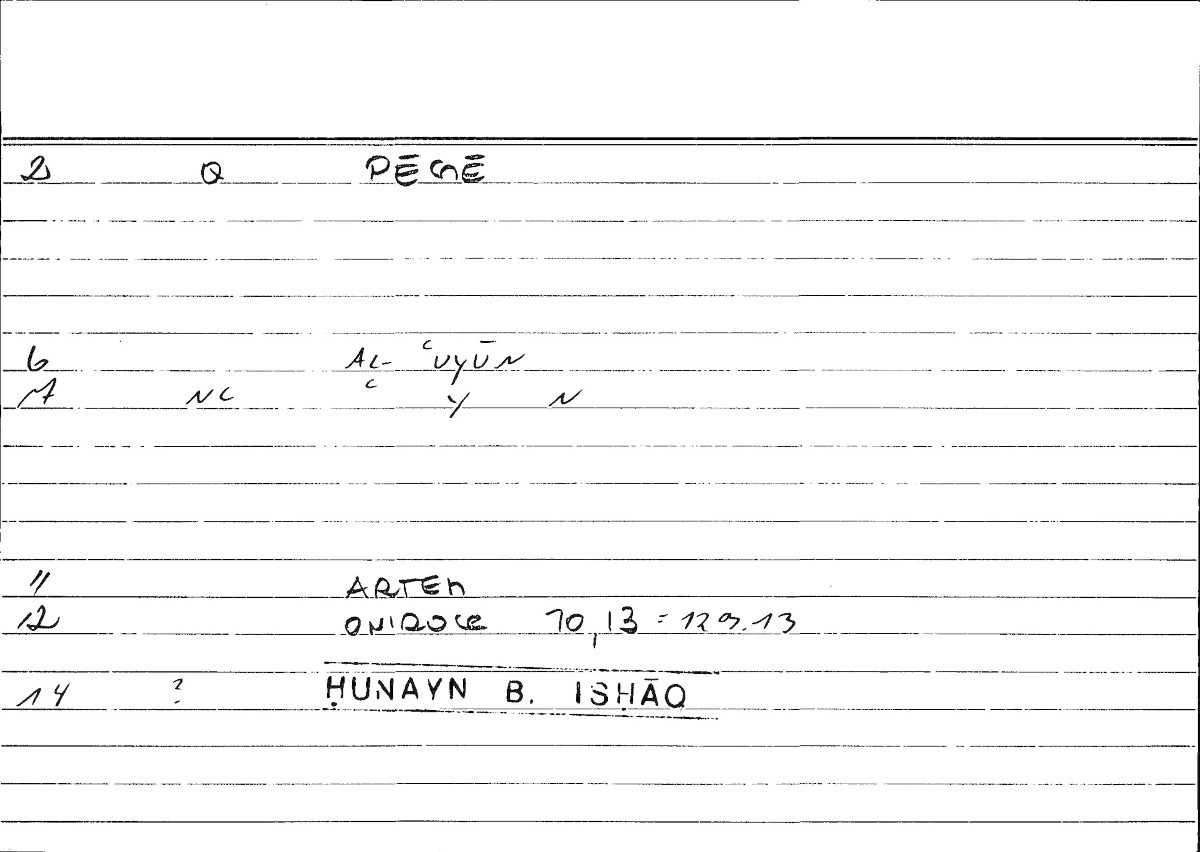 2 Q PĒGĒ
6 AL- ʿUYŪN
7 NC ʿ Y N
11 ARTEM
12 ONIROCR 70,13 = 129.13
14 ? ḤUNAYN B. ISḤĀQ